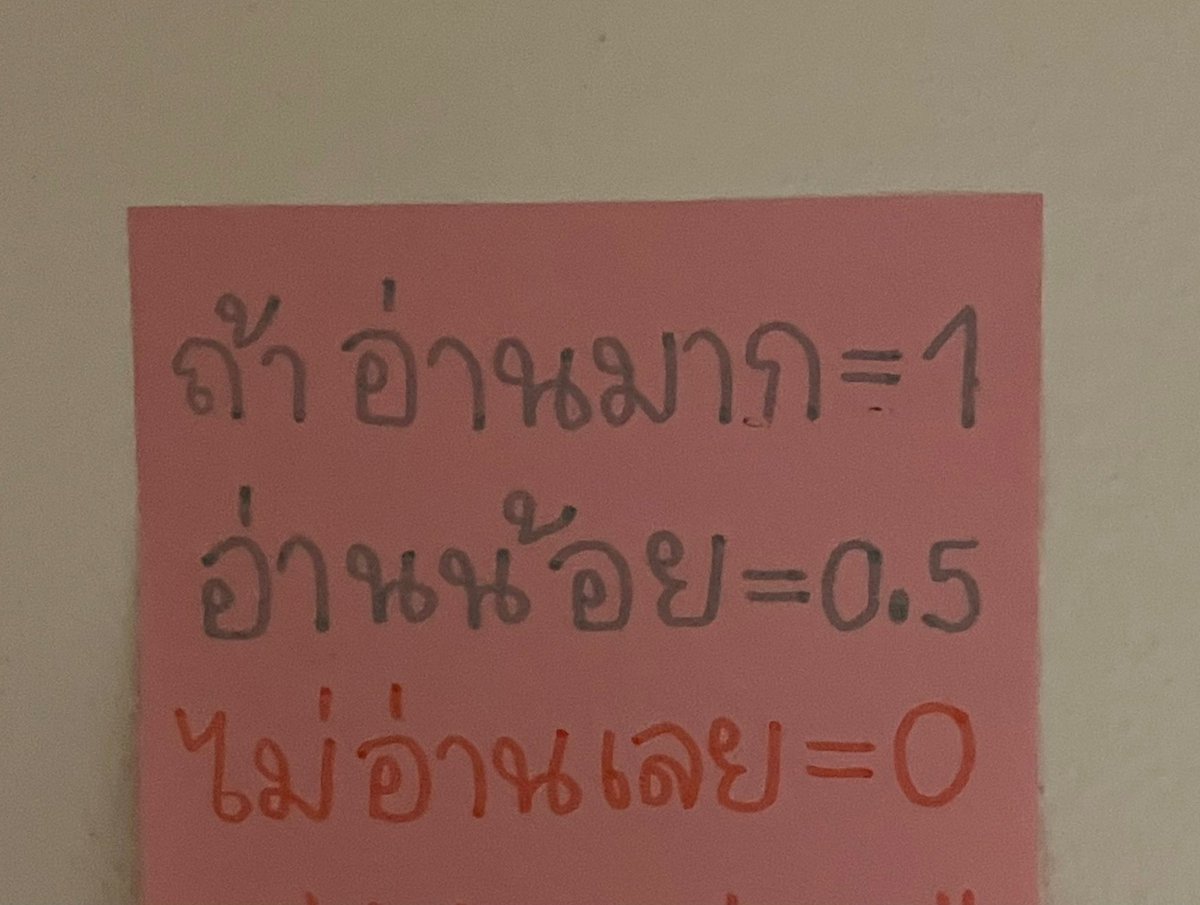 ถ้าอ่านมาก=1
อ่านน้อย=0.5
ไม่อ่านเลย=0